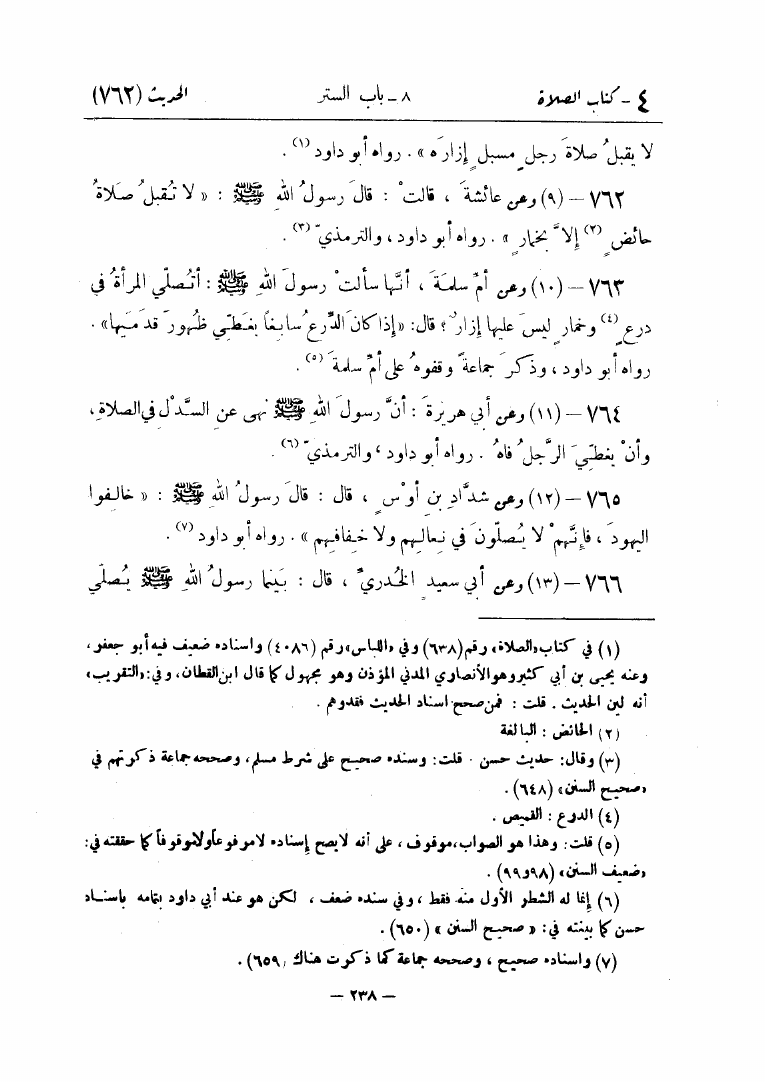 ٤ - كتاب الصلاة ٨ - باب الستر الحديث (٧٦٢)
لا يقبلُ صلاةَ رجلٍ مسبلٍ إزارَه » . رواه أبو داود (١) .
٧٦٢ – (٩) وعن عائشةَ ، قالتْ : قالَ رسولُ اللهِ ﷺ : « لا تُقبلُ صَلاةُ
حائضٍ (٢) إلاَّ بخمارٍ » . رواه أبو داود ، والترمذيّ (٣) .
٧٦٣ – (١٠) وعن أمِّ سلمَةَ ، أنَّها سألتْ رسولَ اللهِ ﷺ : أتُصلّي المرأةُ في
درعٍ (٤) وخمارٍ ليسَ عليها إزارٌ ؟ قال: «إذا كانَ الدِّرعُ سابغاً يغَطّي ظُهورَ قدَمَيها» .
رواه أبو داود ، وذكرَ جماعةً وقفوهُ على أمِّ سلمةَ (٥) .
٧٦٤ – (١١) وعن أبي هريرةَ : أنَّ رسولَ اللهِ ﷺ نهى عنِ السَّدْلِ في الصلاةِ ،
وأنْ يغطّيَ الرَّجلُ فاهُ . رواه أبو داود ، والترمذيّ (٦) .
٧٦٥ – (١٢) وعن شدَّادِ بنِ أوْسٍ ، قال : قالَ رسولُ اللهِ ﷺ : « خالِفوا
اليهودَ ، فإنَّهمْ لا يُصلّونَ في نِعالِهم ولا خِفافِهم » . رواه أبو داود (٧) .
٧٦٦ – (١٣) وعن أبي سعيدٍ الخُدريِّ ، قال : بَينما رسولُ اللهِ ﷺ يُصلّي
(١) في كتاب «الصلاة» رقم (٦٣٨) وفي «اللباس» رقم (٤٠٨٦) واسناده ضعيف فيه أبو جعفر ،
وعنه يحيى بن أبي كثير وهو الأنصاري المدني المؤذن وهو مجهول كما قال ابن القطان ، وفي : «التقريب»
أنه لين الحديث . قلت : فمن صحح اسناد الحديث فقد وهم .
(٢) الحائض : البالغة
(٣) وقال : حديث حسن . قلت : وسنده صحيح على شرط مسلم ، وصححه جماعة ذكرتهم في
«صحيح السنن» (٦٤٨) .
(٤) الدرع : القميص .
(٥) قلت : وهذا هو الصواب ، موقوف ، على أنه لا يصح إسناده لا مرفوعاً ولا موقوفاً كما حققته في :
«ضعيف السنن» (٩٨ و ٩٩) .
(٦) إنما له الشطر الأول منه فقط ، وفي سنده ضعف ، لكن هو عند أبي داود بتمامه باسناد
حسن كما بينته في : « صحيح السنن » (٦٥٠) .
(٧) واسناده صحيح ، وصححه جماعة كما ذكرت هناك (٦٥٩) .
– ٢٣٨ –